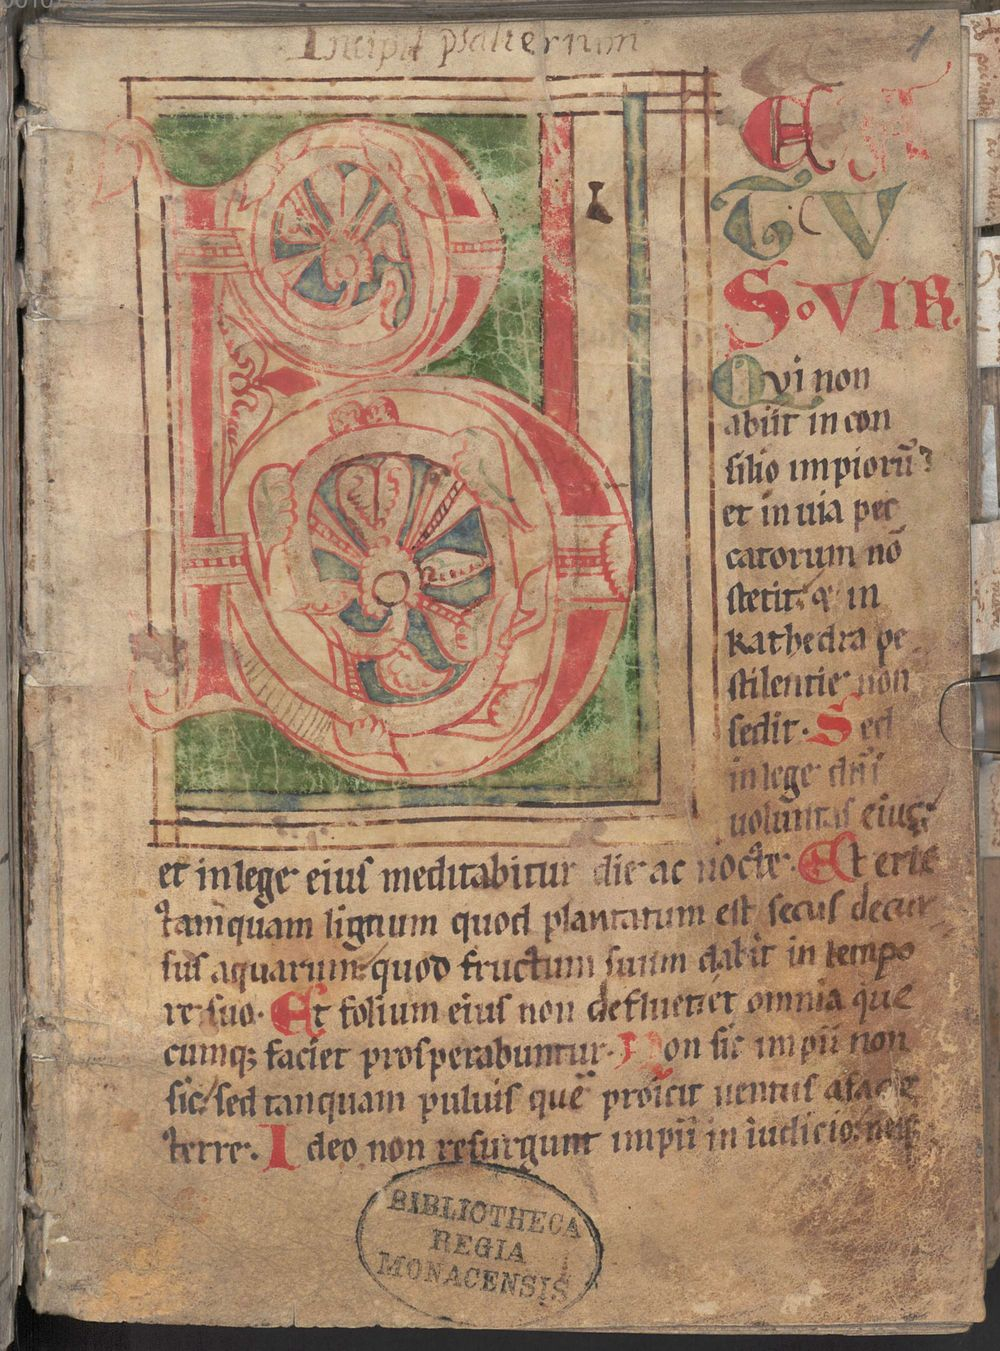 Incipit psalterium
B
EA
TV
S·VIR
Qvi non
abiit in con
silio impiorū
et in uia pec
catorum nō
stetit· & in
kathedra pe
stilentie non
sedit· Sed
in lege dn̄i
uolūntas eius·
et in lege eius meditabitur die ac nocte· Et erit
tamquam lignum quod plantatum est secus decur
sus aquarum· quod fructum suum dabit in tempo
re suo· Et folium eius non defluet· et omnia que
cumq; faciet prosperabuntur· Non sic impii non
sic· sed tanquam puluis quē proicit uentus a facie
terre· Ideo non resurgunt impii in iudicio· neq;
BIBLIOTHECA
REGIA
MONACENSIS